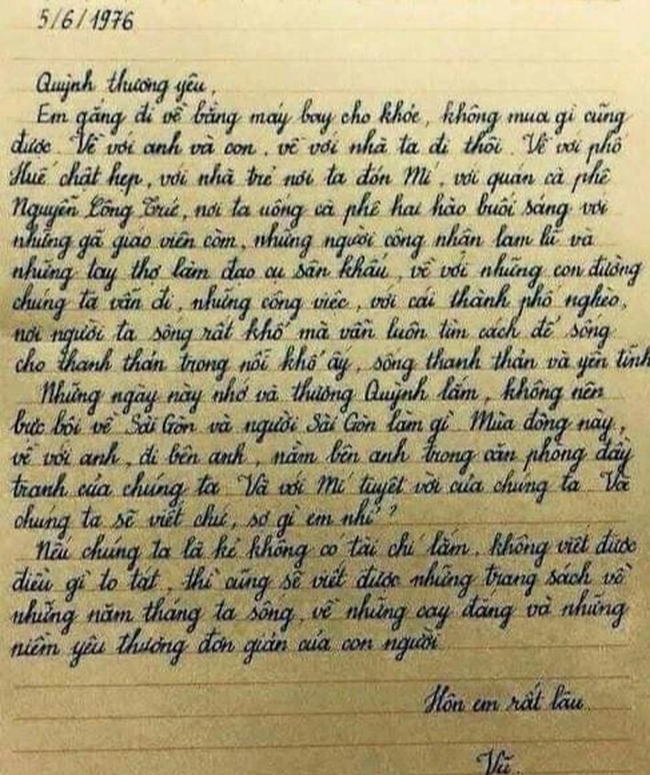 5/6/1976
Quỳnh thương yêu,
Em gắng đi về bằng máy bay cho khỏe, không mua gì cũng
được. Về với anh và con, về với nhà ta đi thôi. Về với phố
Huế chật hẹp, với nhà trẻ nơi ta đón Mí, với quán cà phê
Nguyễn Công Trứ, nơi ta uống cà phê hai hào buổi sáng với
những gã giáo viên còm, những người công nhân lam lũ và
những tay thợ làm đạo cụ sân khấu, về với những con đường
chúng ta vẫn đi, những công việc, với cái thành phố nghèo,
nơi người ta sống rất khổ mà vẫn luôn tìm cách để sống
cho thanh thản trong nỗi khổ ấy, sống thanh thản và yên tĩnh
Những ngày này nhớ và thương Quỳnh lắm, không nên
bực bội về Sài Gòn và người Sài Gòn làm gì. Mùa đông này,
về với anh, đi bên anh, nằm bên anh trong căn phòng đầy
tranh của chúng ta. Và với Mí tuyệt vời của chúng ta. Và
chúng ta sẽ viết chứ, sợ gì em nhỉ?
Nếu chúng ta là kẻ không có tài chi lắm, không viết được
điều gì to tát, thì cũng sẽ viết được những trang sách về
những năm tháng ta sống, về những cay đắng và những
niềm yêu thương đơn giản của con người
Hôn em rất lâu.
Vũ.